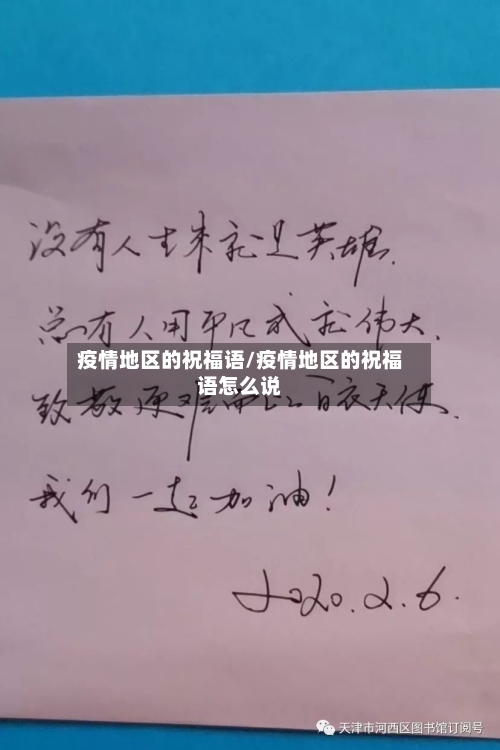 没有人生来就是英雄.
总有人用平凡成就伟大.
疫情地区的祝福语/疫情地区的祝福
语怎么说
致敬 难而上 白衣天使.
我们一起加油!
2020.2.6.
天津市河西区图书馆订阅号